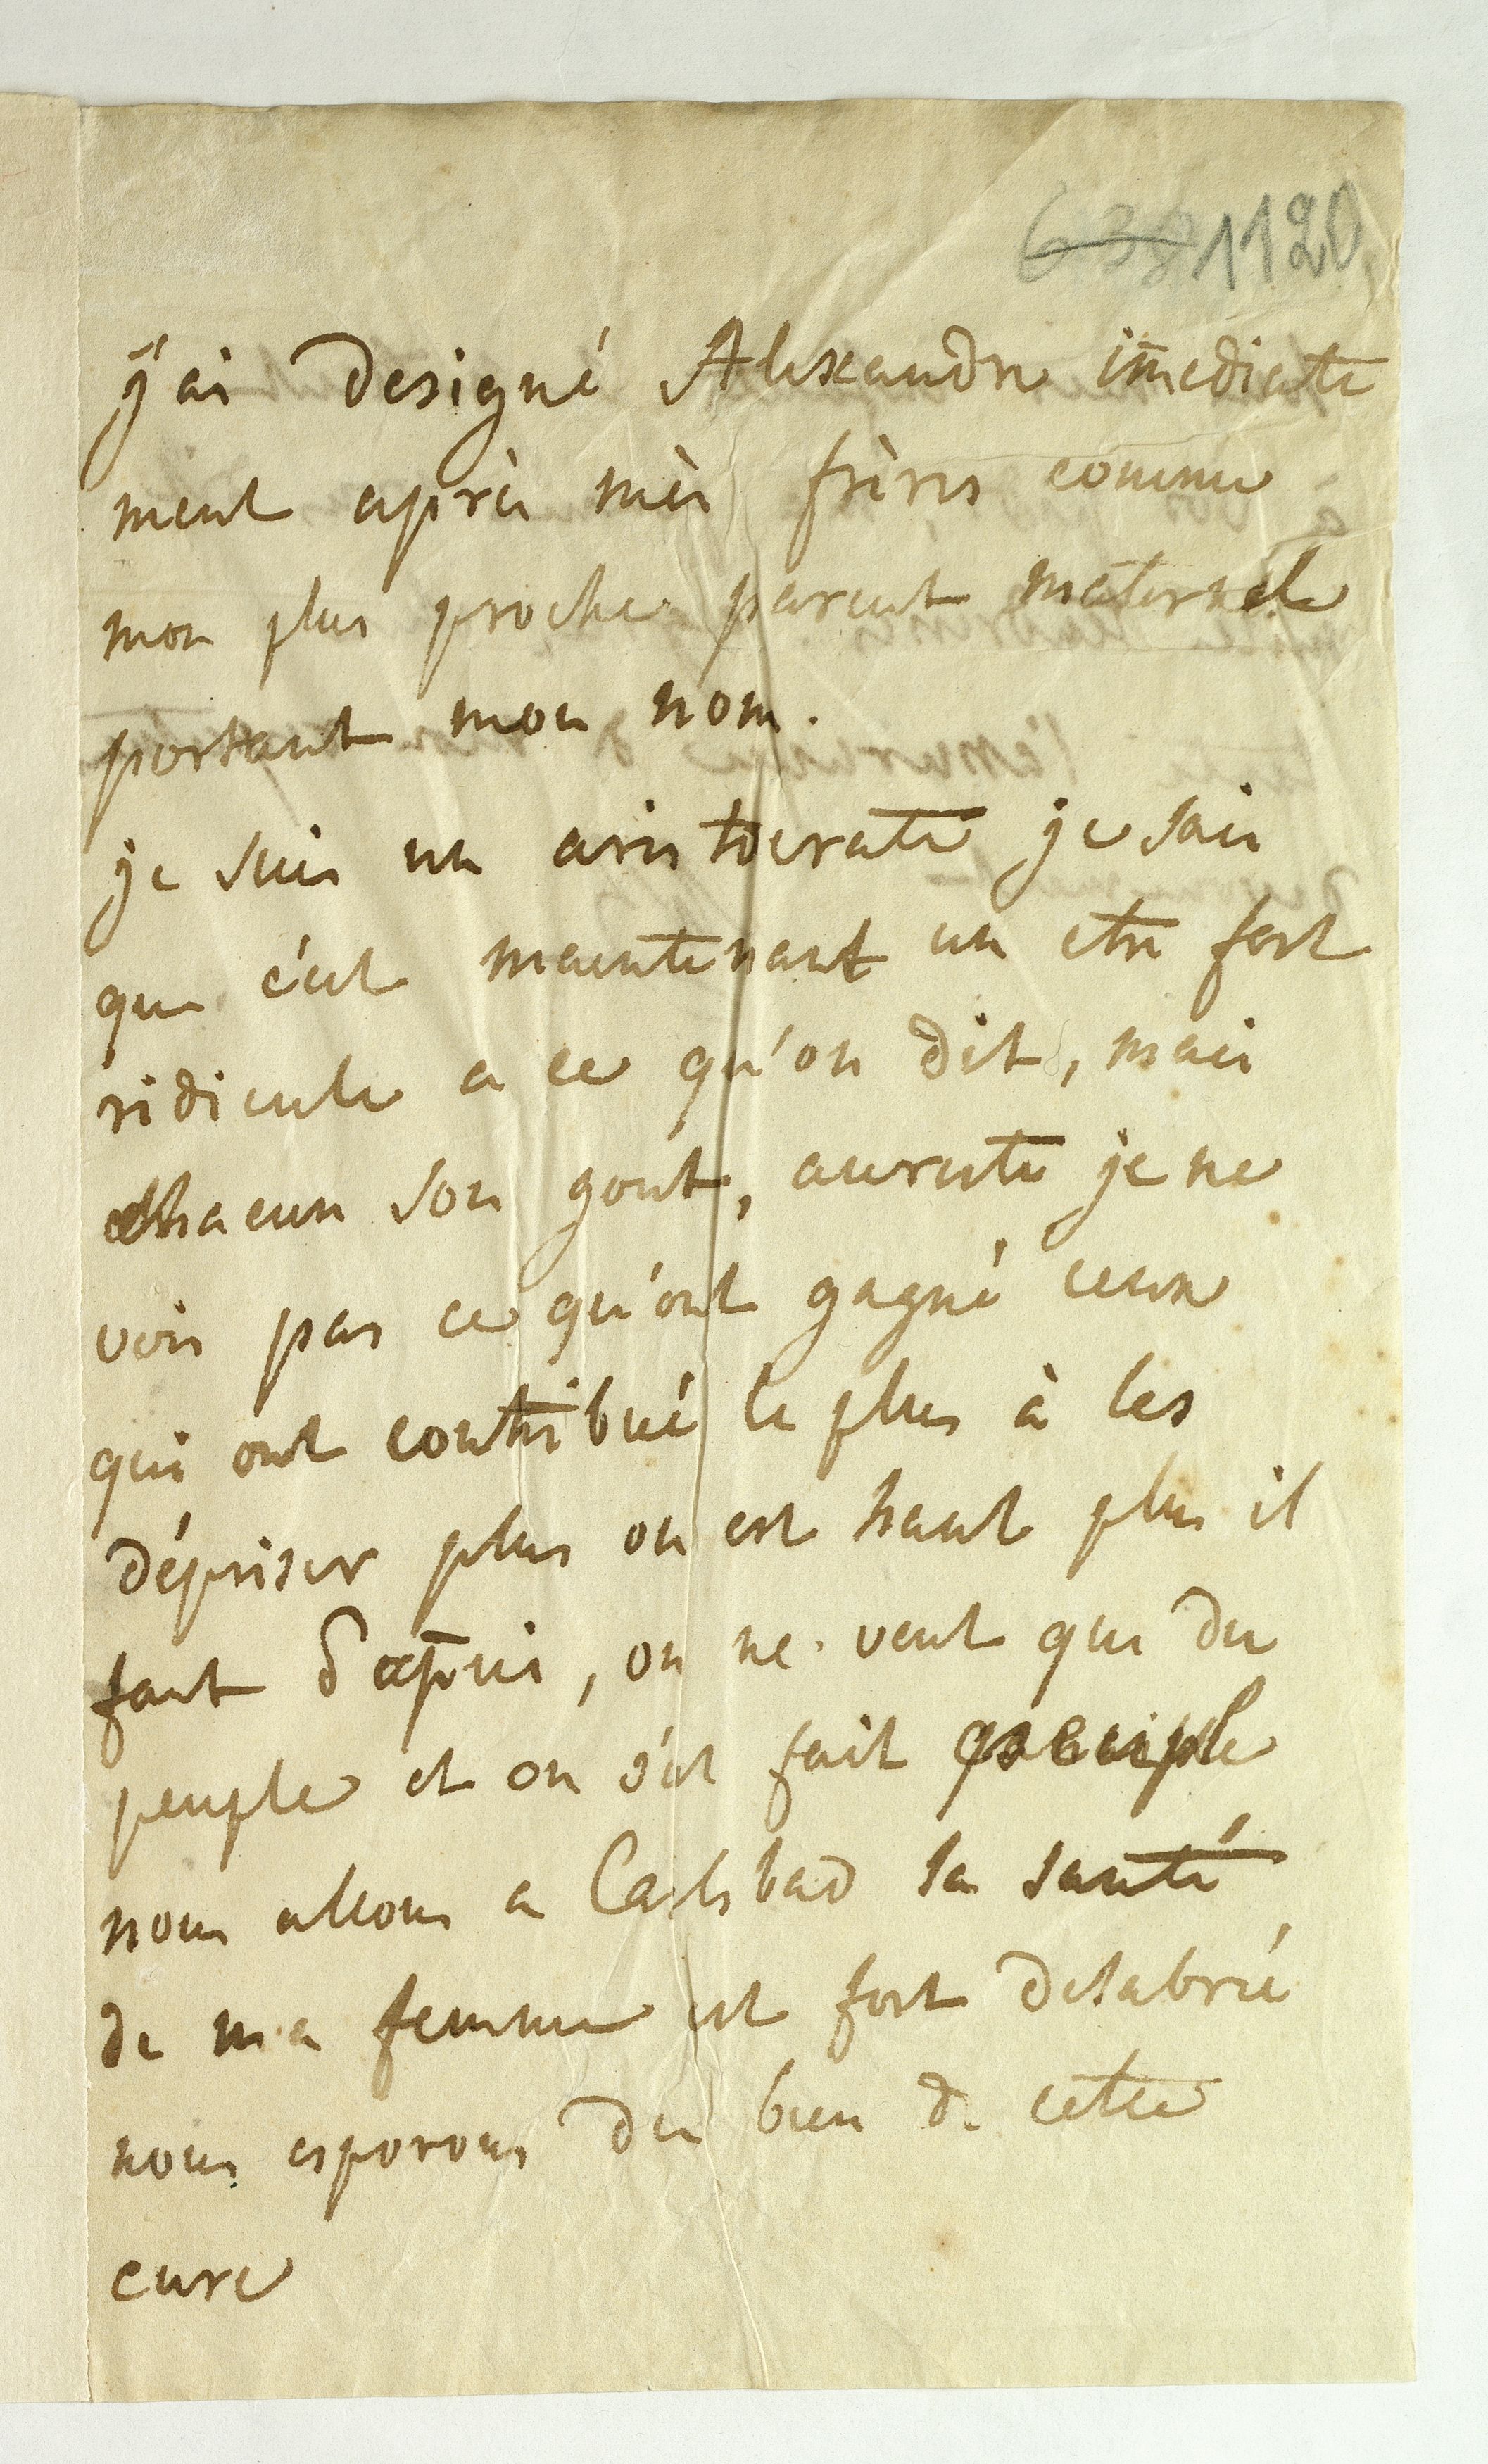 638 1120
j'ai designé Alexandre im̄ediate
ment après mès frères comme
mon plus proche parent maternel
portant mon nom.
je suis un aristocrate je sais
que c'est maintenant un etre fort
ridicule a ce qu'on dit, mais
chacun son gout, aureste je ne
vois pas ce qu'ont gagné ceux
qui ont contribué le plus à les
dépriser plus on est haut plus il
faut d'ap̄uis, on ne veut que du
peuple et on s'est fait peuple
nous allons a Carlsbad la santé
de ma femme est fort delabrée
nous esperons du bien de cette
cure